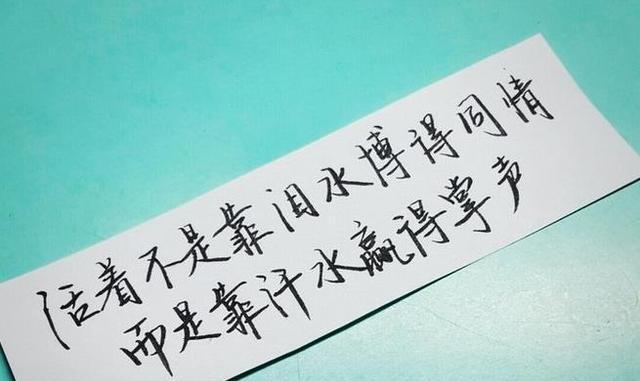 活着不是靠泪水博得同情
而是靠汗水赢得掌声